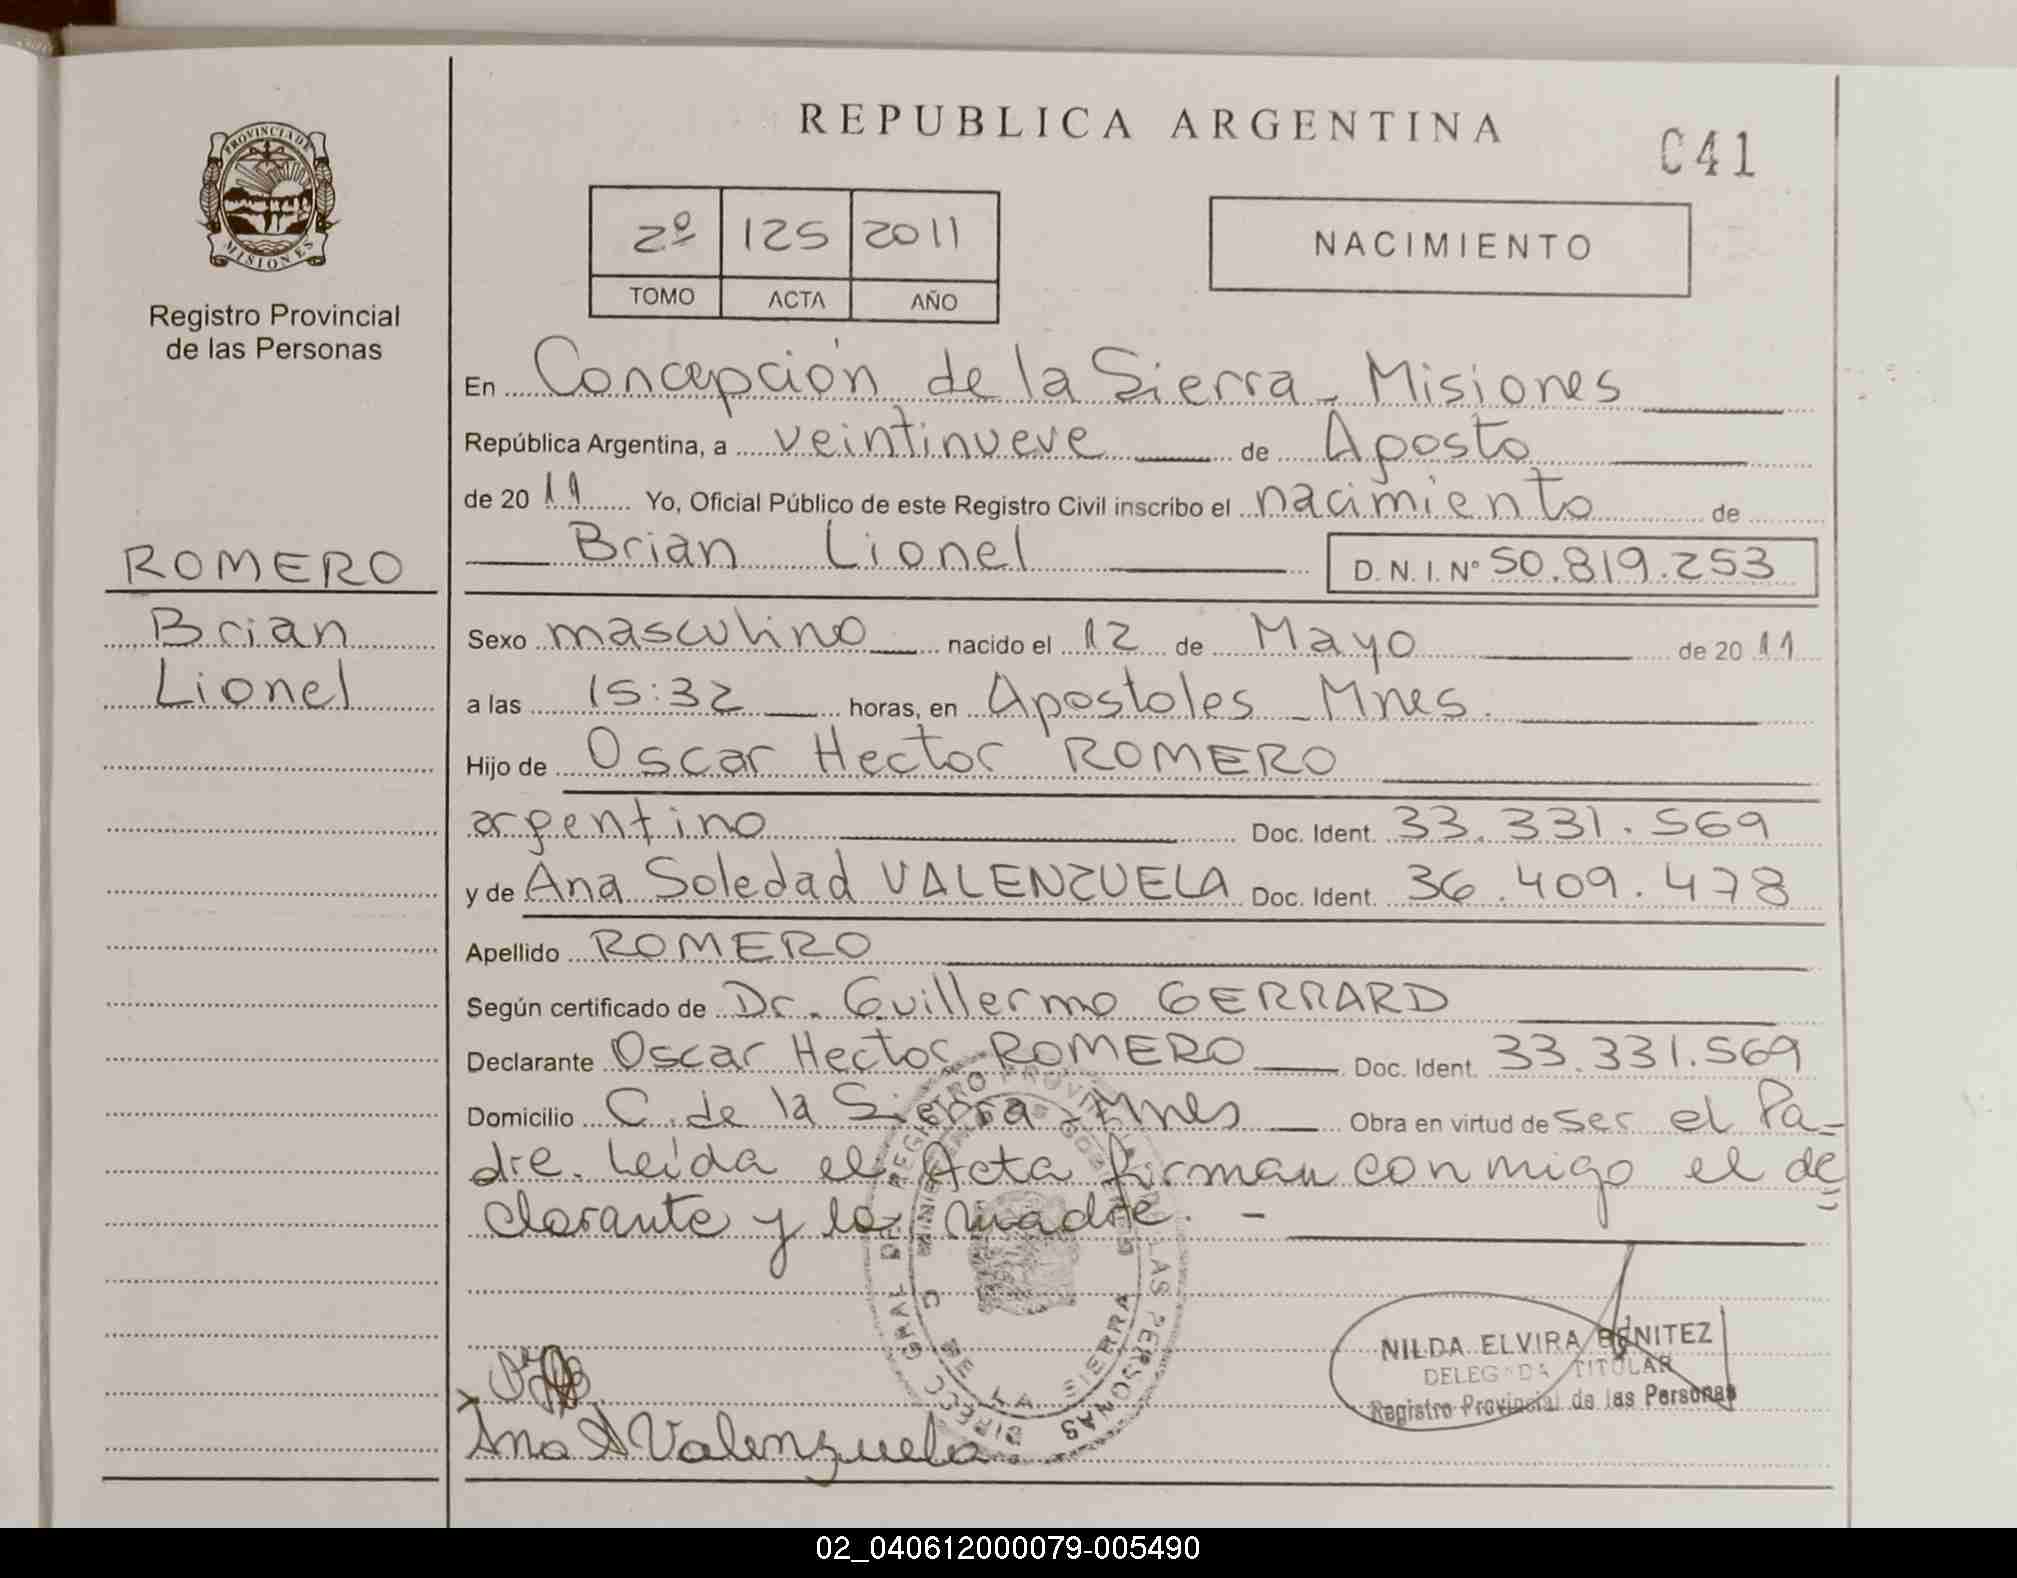 REPUBLICA ARGENTINA
C41
PROVINCIA DE
MISIONES
Registro Provincial
de las Personas
2º 125 2011
TOMO ACTA AÑO
NACIMIENTO
En Concepción de la Sierra - Misiones
República Argentina, a veintinueve de Agosto
de 2011 Yo, Oficial Público de este Registro Civil inscribo el nacimiento de
Brian Lionel D.N.I. Nº 50.819.253
ROMERO
Brian
Lionel
Sexo masculino nacido el 12 de Mayo de 2011
a las 15:32 horas, en Apostoles - Mnes.
Hijo de Oscar Hector ROMERO
argentino Doc. Ident. 33.331.569
y de Ana Soledad VALENZUELA Doc. Ident. 36.409.478
Apellido ROMERO
Según certificado de Dr. Guillermo GERRARD
Declarante Oscar Hector ROMERO Doc. Ident. 33.331.569
Domicilio C. de la Sierra - Mnes Obra en virtud de ser el Pa-
dre. Leída el Acta firman conmigo el de
clarante y la madre. -
DIRECC GRAL DEL REGISTRO PROVINCIAL DE LAS PERSONAS
C DE LA SIERRA
NILDA ELVIRA BENITEZ
DELEGADA TITULAR
Registro Provincial de las Personas
Ana S Valenzuela
02_040612000079-005490